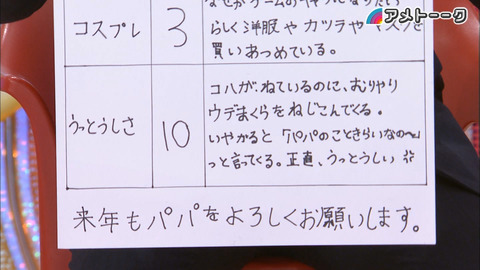 アメトーーク
コスプレ
3
らしく洋服やカツラや
買いあつめている。
うっとうしさ
10
コハがねているのに、むりやり
ウデまくらをねじこんでくる。
いやがると「パパのこときらいなの〜」
っと言ってくる。正直、うっとうしい
来年もパパをよろしくお願いします。